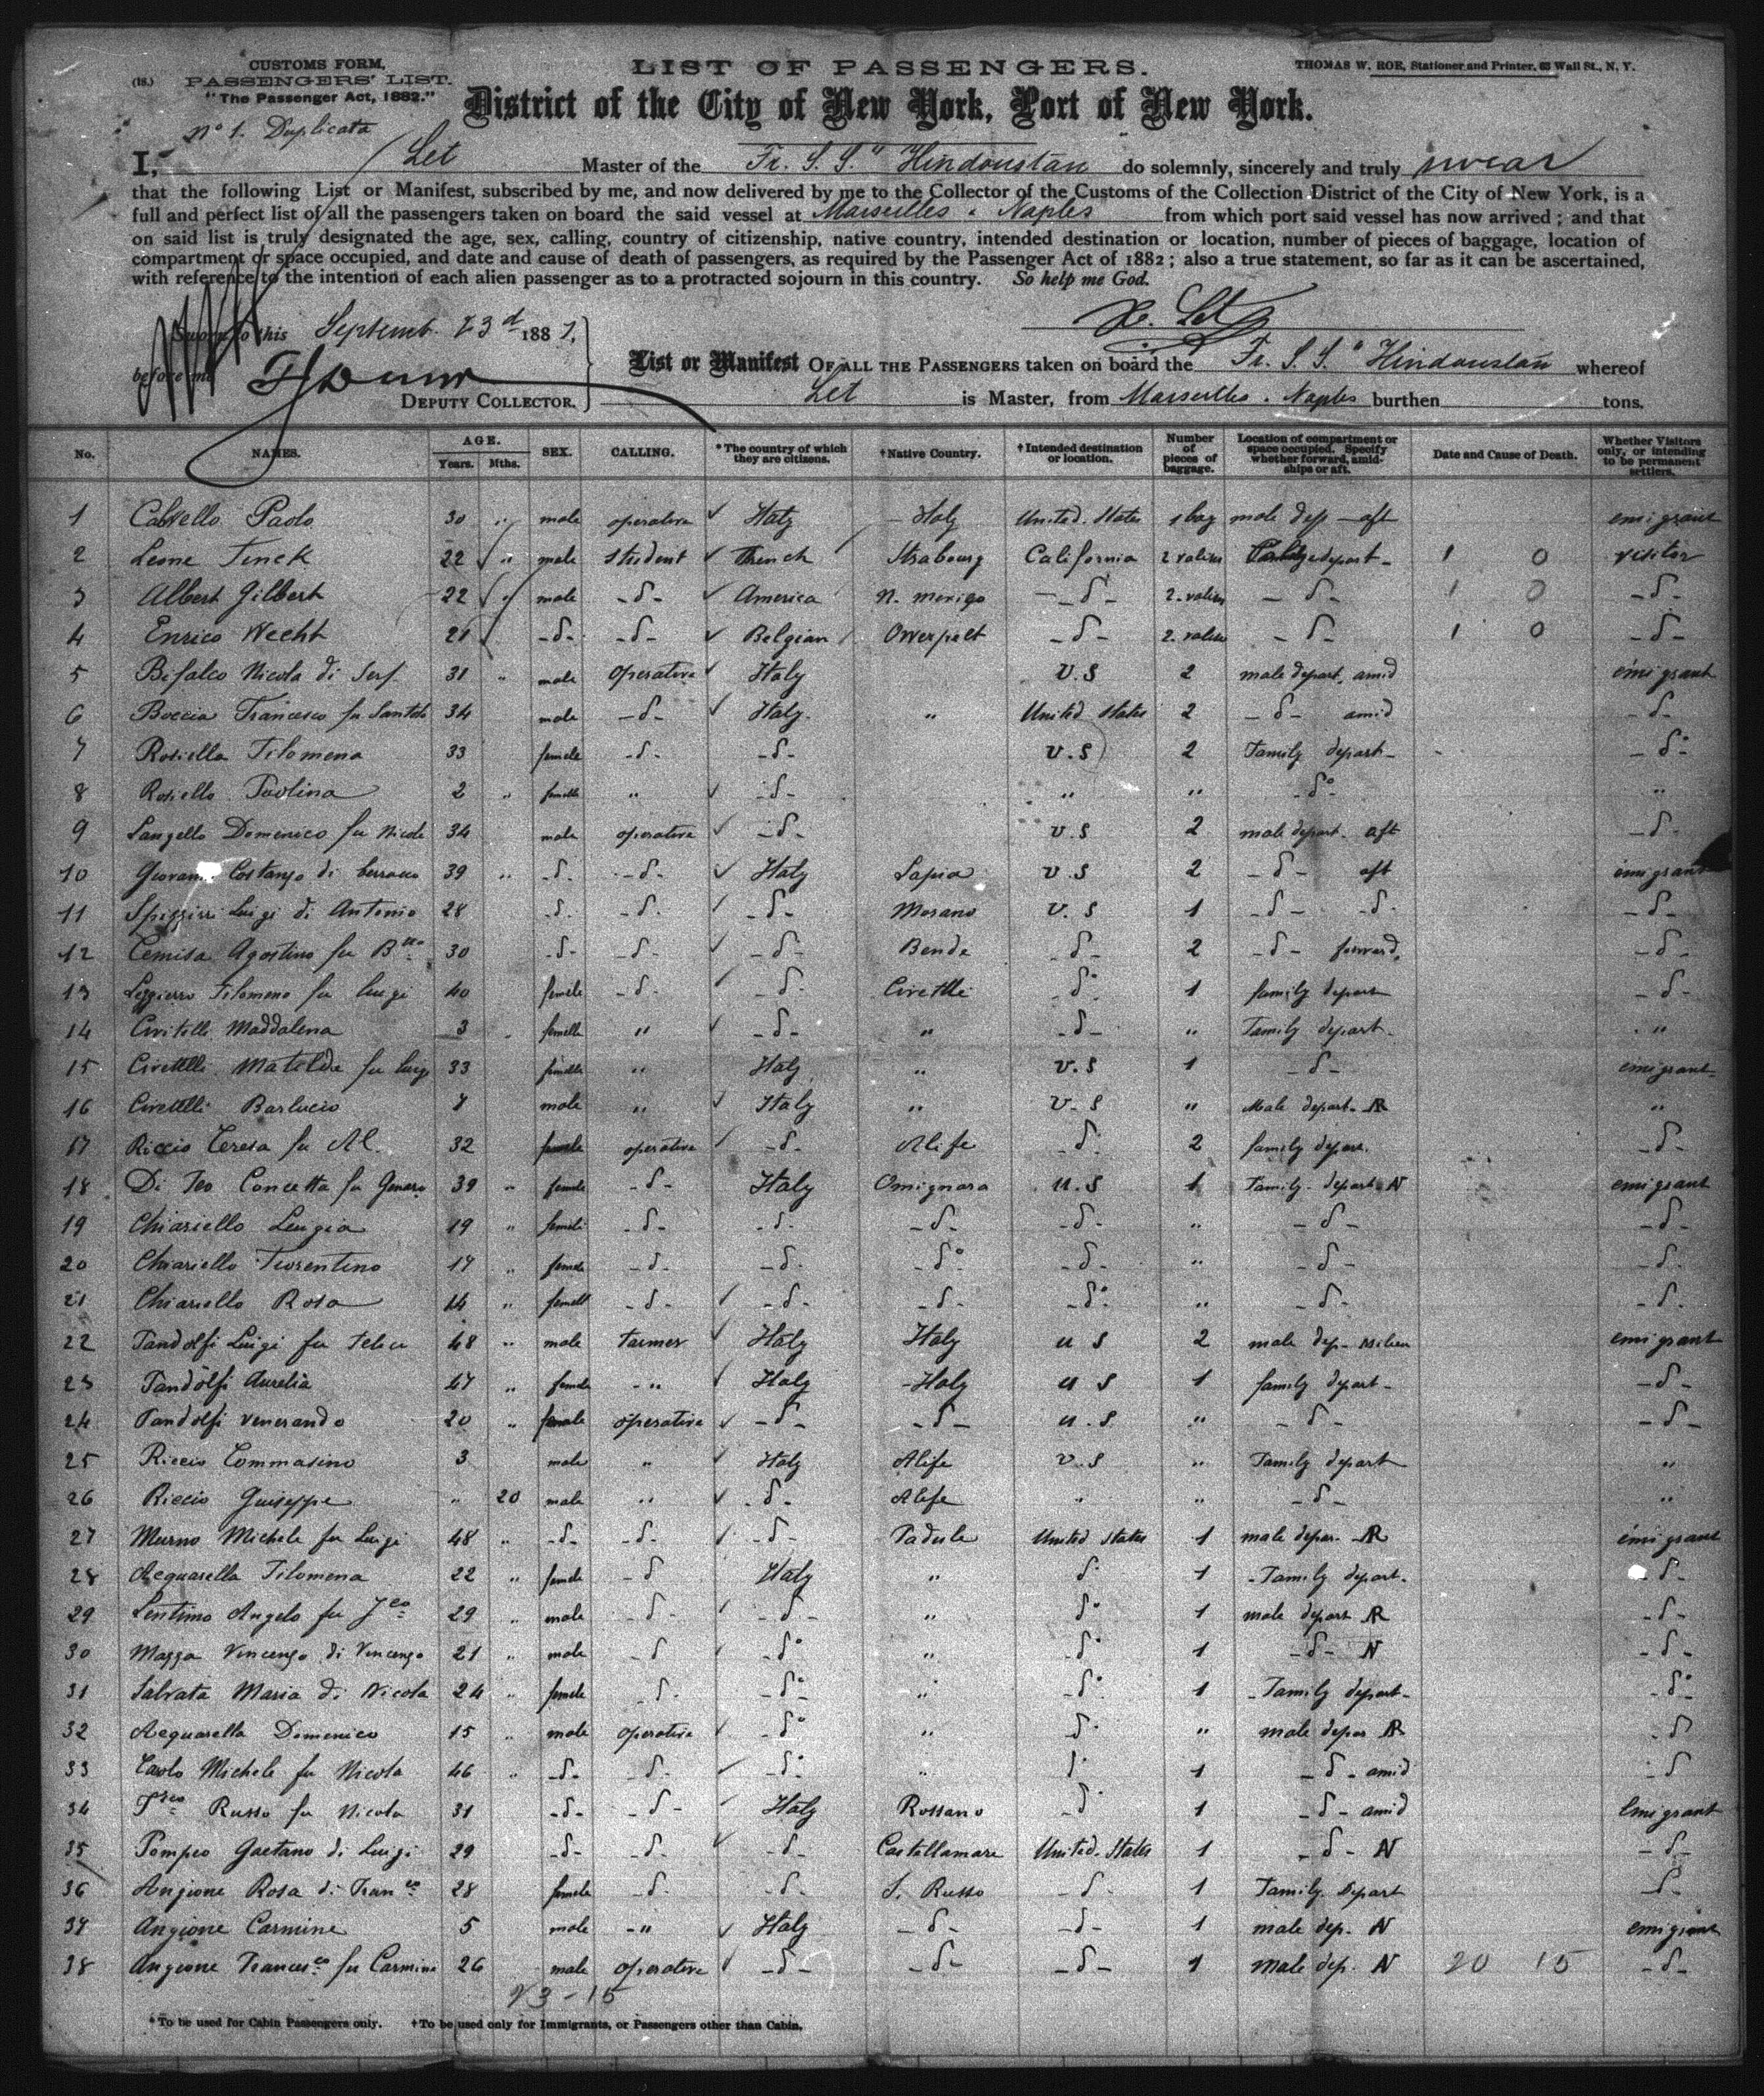 CUSTOMS FORM.
(18.) PASSENGERS' LIST.
"The Passenger Act, 1882."
LIST OF PASSENGERS.
THOMAS W. ROE, Stationer and Printer, 63 Wall St., N. Y.
District of the City of New York, Port of New York.
No 1. Duplicata
I, Let Master of the Fr. S. S. "Hindoustan do solemnly, sincerely and truly swear
that the following List or Manifest, subscribed by me, and now delivered by me to the Collector of the Customs of the Collection District of the City of New York, is a
full and perfect list of all the passengers taken on board the said vessel at Marseilles . Naples from which port said vessel has now arrived; and that
on said list is truly designated the age, sex, calling, country of citizenship, native country, intended destination or location, number of pieces of baggage, location of
compartment or space occupied, and date and cause of death of passengers, as required by the Passenger Act of 1882; also a true statement, so far as it can be ascertained,
with reference to the intention of each alien passenger as to a protracted sojourn in this country. So help me God.
Sworn to this Septemb. 23d 1887,
before me
DEPUTY COLLECTOR.
Let
List or Manifest OF ALL THE PASSENGERS taken on board the Fr. S. S. "Hindoustan whereof
Let is Master, from Marseilles . Naples burthen tons.
No. NAMES. AGE. Years. Mths. SEX. CALLING. *The country of which they are citizens. †Native Country. †Intended destination or location. Number of pieces of baggage. Location of compartment or space occupied. Specify whether forward, amidships or aft. Date and Cause of Death. Whether Visitors only, or intending to be permanent settlers.
1 Calvello Paolo 30 " male operative Italy Italy United. States 1 bag male dep aft emigrant
2 Leone Finck 22 " male student French Strabourg California 2 valises depart - 1 0 visitor
3 Albert Gilbert 22 " male -d- America N. mexigo -d- 2 valises -d- 1 0 -d-
4 Enrico Wecht 21 -d- -d- Belgian Owerpelt -d- 2 valises -d- 1 0 -d-
5 Bifalco Nicola di Serf. 31 " male operative Italy U.S 2 male depart. amid émigrant
6 Boccia Francesco fu Santolo 34 male -d- Italy. " United States 2 -d- amid -d-
7 Rosiella Filomena 33 female -d- -d- U.S 2 Family depart- -d-
8 Rosiello Paolina 2 " female " -d- " " -d- "
9 Sangello Domenico fu Nicola 34 male operative -d- U.S 2 male depart. aft -d-
10 Costanzo di 39 " -d- -d- Italy Lapio U.S 2 -d- aft emigrant
11 Luigi di Antonio 28 -d- -d- -d- Morano U.S 1 -d- -d- -d-
12 Cemisa Agostino fu 30 -d- -d- -d- Bende -d- 2 -d- forward. -d-
13 Leggierro Filomena fu Luigi 40 female -d- -d- Civetlli -d- 1 family depart -d-
14 Civitelli Maddalena 3 female " -d- " -d- " Family depart. "
15 Civetelli Matelda fu Luigi 33 female " Italy " U.S 1 -d- emigrant
16 Civetelli Barlucio 7 male " Italy " U.S " Male depart. AR "
17 Riccio Teresa fu Al. 32 female operative -d- Alife -d- 2 family depart. -d-
18 Di Teo Concetta fu Genaro 39 " female -d- Italy Omignara U.S 1 Family. depart. N emigrant
19 Chiariello Luigia 19 " female -d- -d- -d- -d- " -d- -d-
20 Chiariello Fiorentino 17 " female -d- -d- -d- -d- " -d- -d-
21 Chiariello Rosa 14 " female -d- -d- -d- -d- " -d- -d-
22 Pandolfi Luigi fu Felice 48 " male farmer Italy Italy U S 2 male dep- milieu emigrant
23 Pandolfi Aurelia 47 " female " Italy Italy U S 1 family depart- -d-
24 Pandolfi Venerando 20 " male operative -d- -d- U.S " -d- -d-
25 Riccio Tommasino 3 male " Italy Alife U.S " Family depart "
26 Riccio Guiseppe " 20 male " -d- Alife " " -d- "
27 Murno Michele fu Luigi 48 " -d- -d- -d- Padula United States 1 male depar. AR émigrant
28 Acquarella Filomena 22 " female -d Italy " d 1 Family depart. -d-
29 Lentino Angelo fu Fco 29 " male -d- -d- " d 1 male depart AR -d-
30 Mazza Vincenzo di Vincenzo 21 " male -d -d " -d 1 -d- N -d-
31 Salvata Maria di Nicola 24 " female -d- -d- " -d 1 Family depart- -d-
32 Acquarella Domenico 15 " male operative -d " d " male depar AR -d
33 Michele fu Nicola 46 " -d- -d- -d- " d 1 -d- amid -d
34 Russo fu Nicola 31 -d- -d- Italy Rossano -d 1 -d- amid Emigrant
35 Pompeo Gaetano di Luigi 29 -d- -d- -d- Castellamare United. States 1 -d- N -d-
36 Angione Rosa di Franco 28 female -d- -d- S. Russo -d- 1 Family. Depart -d-
37 Angione Carmine 5 male -" Italy -d- -d- 1 male dep. N emigrant
38 Angione Francesco fu Carmine 26 male operative -d- -d- -d- 1 Male dep. N 20 15 -d-
23-15
*To be used for Cabin Passengers only. †To be used only for Immigrants, or Passengers other than Cabin.